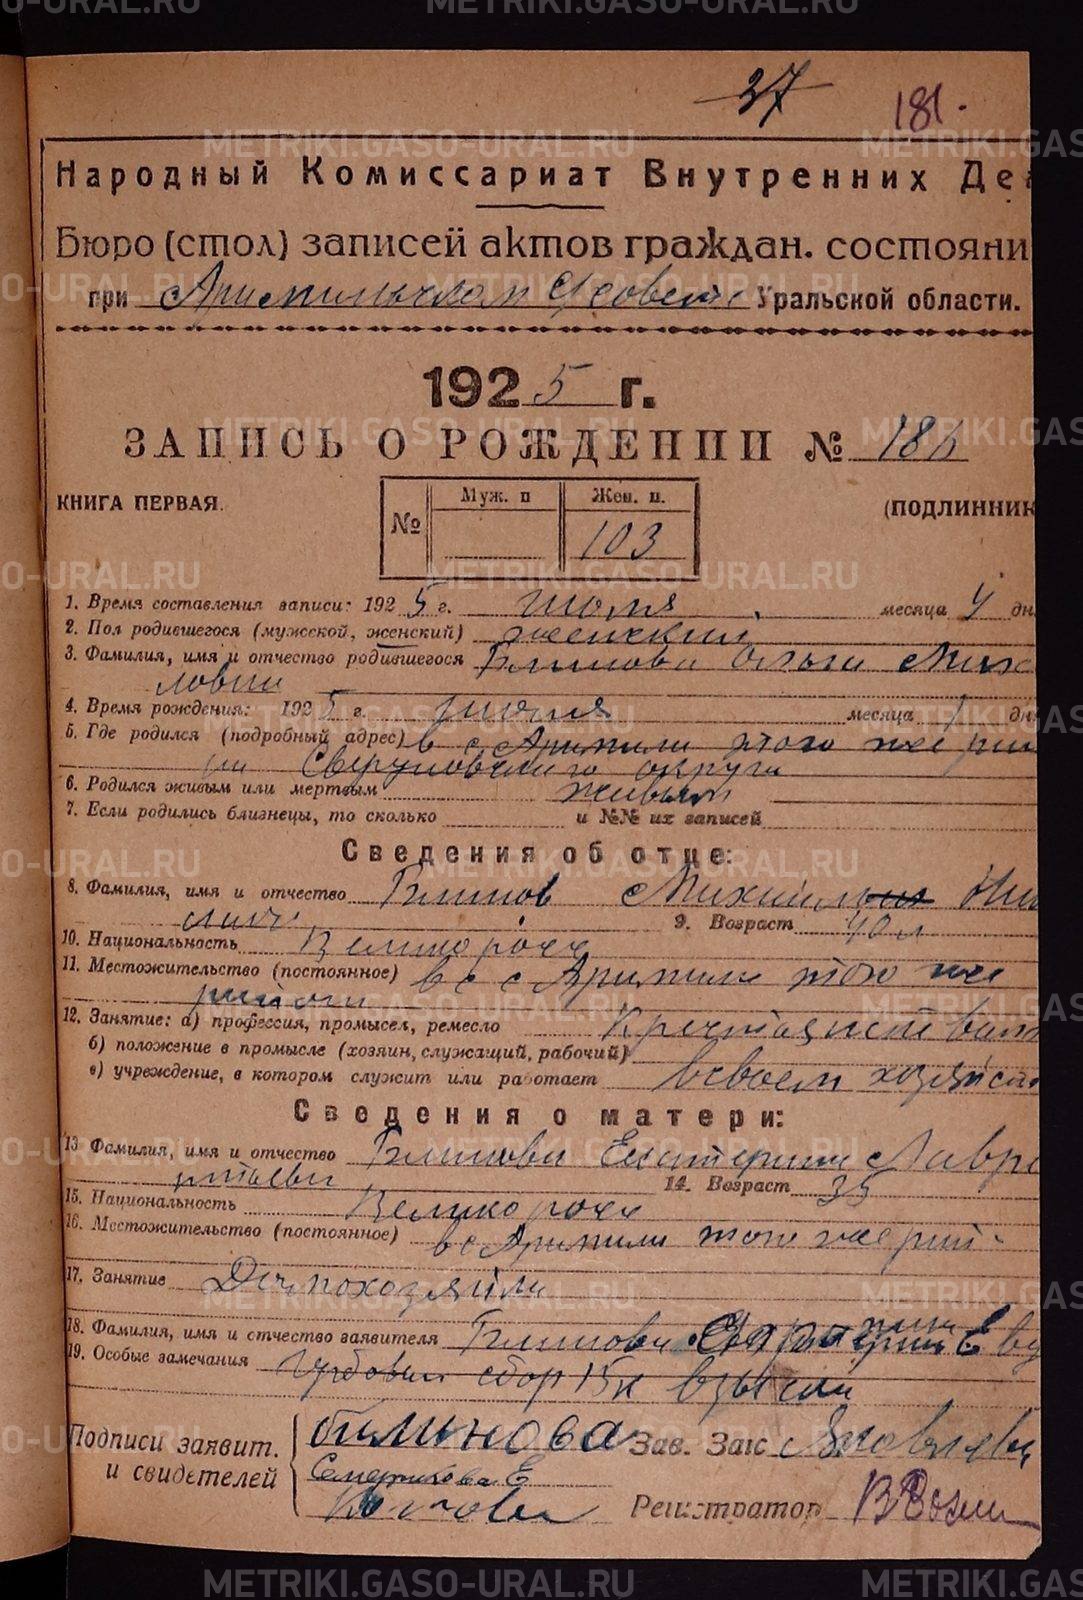 37 181.
Народный Комиссариат Внутренних Де
Бюро (стол) записей актов граждан. состояни
при Арамильском Уральской области.
1925 г.
ЗАПИСЬ О РОЖДЕНИИ № 186
КНИГА ПЕРВАЯ. (ПОДЛИННИК
№ Муж. п Жен. п.
103
1. Время составления записи: 1925 г. июля месяца 4 дн
2. Пол родившегося (мужской, женский) женский
3. Фамилия, имя и отчество родившегося Блинова Ольга Миха
ловна
4. Время рождения: 1925 г. июля месяца 1 дн
5. Где родился (подробный адрес) в с. Арамили этого же рай
на Свердловского округа
6. Родился живым или мертвым живым
7. Если родились близнецы, то сколько и №№ их записей
Сведения об отце:
8. Фамилия, имя и отчество Блинов Михаил
9. Возраст 40 л
10. Национальность Великоросс
11. Местожительство (постоянное) в с Арамили этого же
района
12. Занятие: а) профессия, промысел, ремесло Крестьянствован
б) положение в промысле (хозяин, служащий, рабочий)
в) учреждение, в котором служит или работает в своем хозяйств
Сведения о матери:
13 Фамилия, имя и отчество Блинова Екатерина Лавре
нтьевна 14. Возраст 35
15. Национальность Великоросс
16. Местожительство (постоянное) в с Арамили того же рай
17. Занятие Домохозяйка
18. Фамилия, имя и отчество заявителя Блинова
19. Особые замечания Гербовый сбор 15 к взыскан
Подписи заявит. блинова Зав. Загс Яковлев
и свидетелей Семерикова Е
Регистратор
METRIKI.GASO-URAL.RU